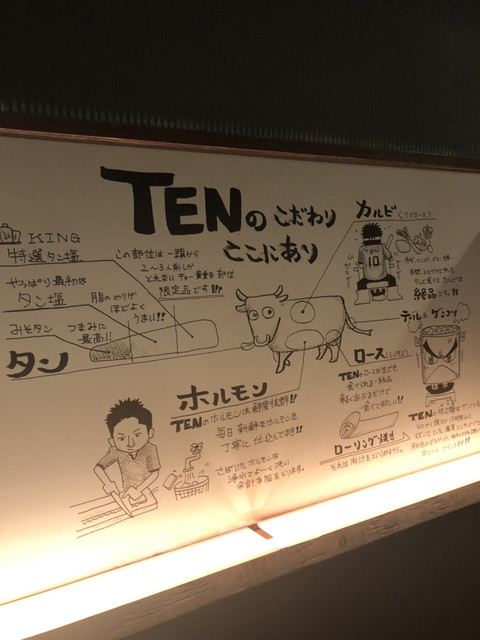 TENの こだわり
ここにあり
KING
特選タン塩
この部位は一頭から
2〜3人前しか
とれない チョー貴重な部位
限定品です!!!
やっぱり最初は
タン塩
脂のノリが
ほどよく
うまい!!
みそタン
つまみに
最高!!
タン
カルビ
TEN
10
絶品です!!
テール & ゲンコツ
ロース
TENのロースは生でも
食べられる
軽くあぶるだけで
食べて欲しい!!
ローリング焼き
ホルモン
TENのホルモンは鮮度抜群!!
毎日 新鮮なホルモンを
丁寧に 仕込んでます!!
さばいたホルモンを
浄水でよーく洗い
余計な脂をとります。